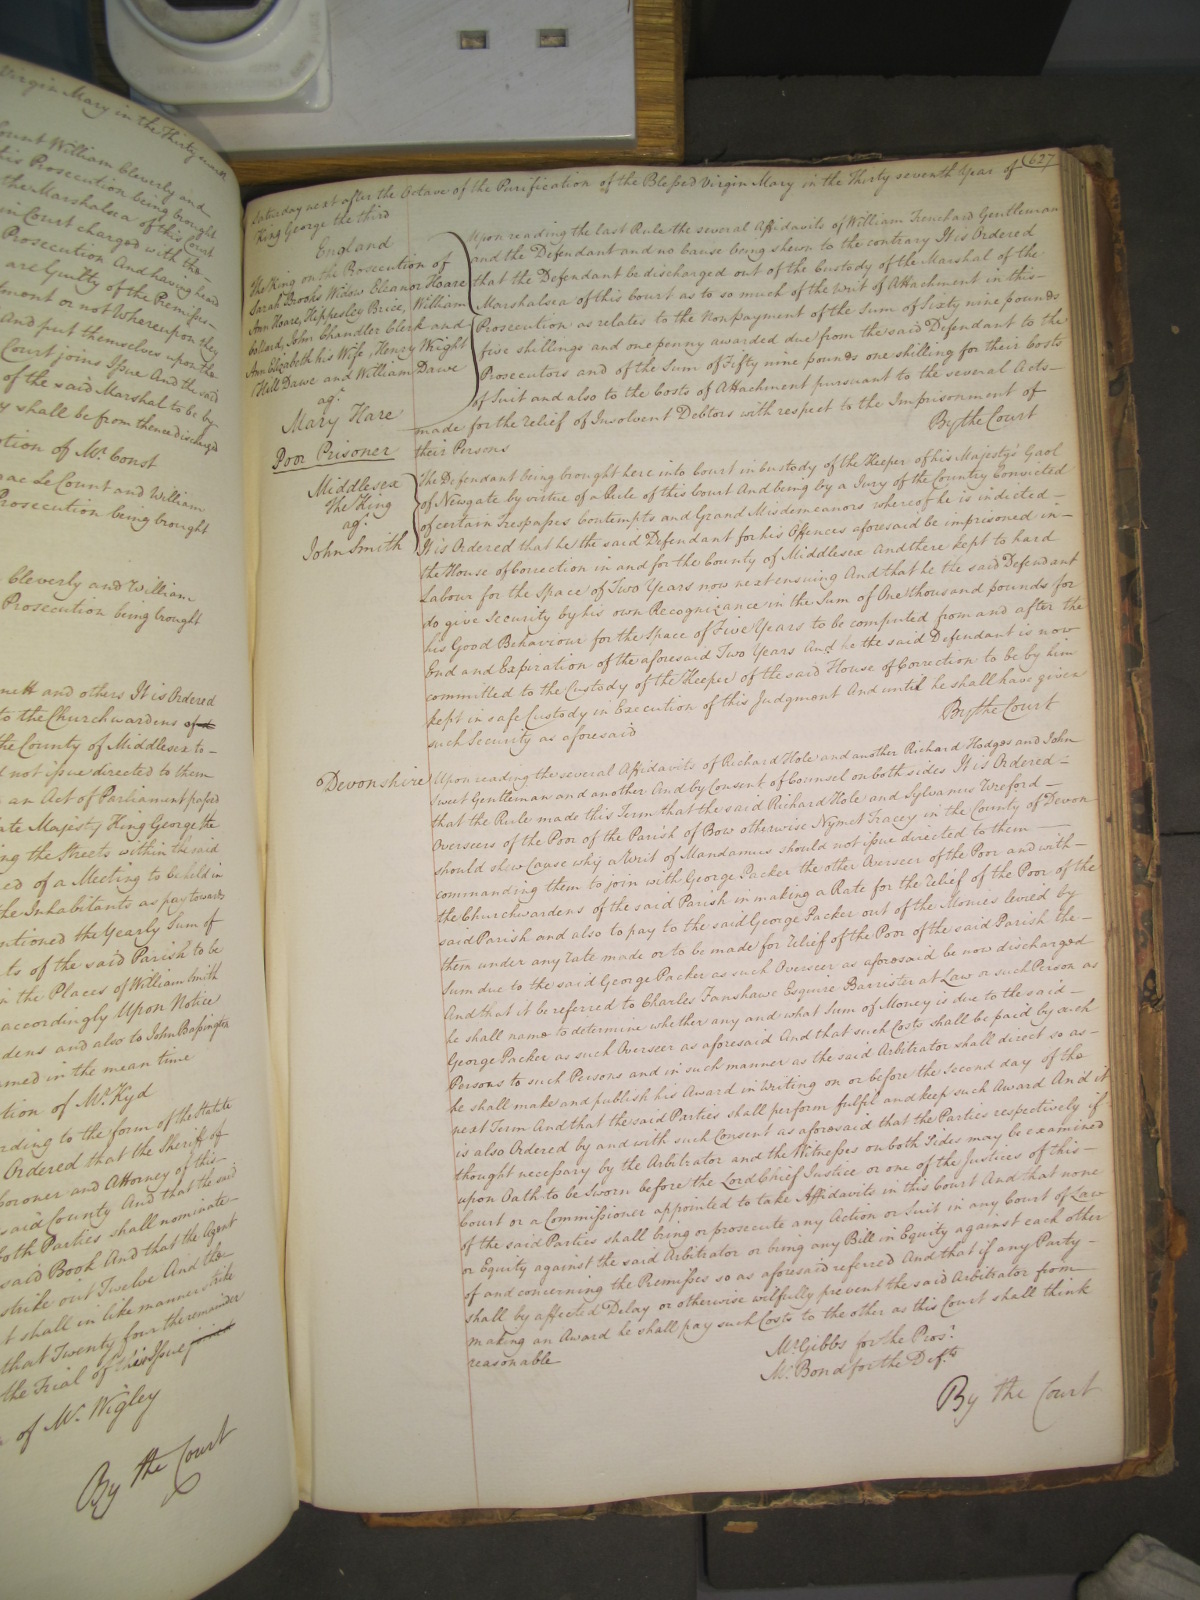 Virgin Mary in the Thirty seventh
Count William Cleverly and
his Prosecution being brought
the Marshalsea of this Court
in Court charged with the
Prosecution And having heard
are Guilty of the Premises
or not Whereupon they
And put themselves upon the
Court joins Issue And the said
of the said Marshal to be by
shall be from thence discharged
tion of Mr. Const
Le Count and William
Prosecution being brought
Cleverly and William
Prosecution being brought
and others It is Ordered
to the Churchwardens
the County of Middlesex to
not issue directed to them
an Act of Parliament passed
Majesty King George the
ing the Streets within the said
of a Meeting to be held in
the Inhabitants as pay towards
mentioned the Yearly Sum of
of the said Parish to be
in the Places of William Smith
accordingly Upon Notice
dens and also to John Bassington
named in the mean time
tion of Mr. Kyd
rding to the form of the Statute
Ordered that the Sheriff of
Coroner and Attorney of this
said County And that the said
both Parties shall nominate
said Book And that the Agent
strike out Twelve And the
shall in like manner strike
that Twenty four the remainder
the Trial of this Issue
of Mr. Wigley
By the Court
627
Saturday next after the Octave of the Purification of the Blessed Virgin Mary in the Thirty seventh Year of
King George the third
England
The King on the Prosecution of
Sarah Brooks Widow Eleanor Hoare
Ann Hoare, Heppesley Brice, William
Collard, John Chandler Clerk and
Ann Elizabeth his Wife, Henry Wright
Hill Dawe and William Dawe
agt.
Mary Hare
Poor Prisoner
Upon reading the last Rule the several Affidavits of William Trenchard Gentleman
and the Defendant and no Cause being shewn to the contrary It is Ordered
that the Defendant be discharged out of the Custody of the Marshal of the
Marshalsea of this Court as to so much of the Writ of Attachment in this
Prosecution as relates to the Nonpayment of the Sum of Sixty nine pounds
five shillings and one penny awarded due from the said Defendant to the
Prosecutors and of the Sum of Fifty nine pounds one shilling for their Costs
of Suit and also to the Costs of Attachment pursuant to the several Acts
made for the relief of Insolvent Debtors with respect to the Imprisonment of
their Persons
By the Court
Middlesex
The King
agt.
John Smith
The Defendant being brought here into Court in Custody of the Keeper of his Majesty's Gaol
of Newgate by virtue of a Rule of this Court And being by a Jury of the Country Convicted
of certain Trespasses Contempts and Grand Misdemeanors whereof he is indicted
It is Ordered that he the said Defendant for his Offences aforesaid be imprisoned in
the House of Correction in and for the County of Middlesex And there kept to hard
Labour for the Space of Two Years now next ensuing And that he the said Defendant
do give Security by his own Recognizance in the Sum of One thousand pounds for
his Good Behaviour for the Space of Five Years to be computed from and after the
End and Expiration of the aforesaid Two Years And he the said Defendant is now
committed to the Custody of the Keeper of the said House of Correction to be by him
kept in safe Custody in Execution of this Judgment And until he shall have given
such Security as aforesaid
By the Court
Devonshire
Upon reading the several Affidavits of Richard Hole and another Richard Hodges and John
Sweet Gentleman and another And by Consent of Counsel on both sides It is Ordered
that the Rule made this Term that the said Richard Hole and Sylvanus Wreford
Overseers of the Poor of the Parish of Bow otherwise Nymet Tracey in the County of Devon
should shew Cause why a Writ of Mandamus should not issue directed to them
commanding them to join with George Packer the other Overseer of the Poor and with
the Churchwardens of the said Parish in making a Rate for the relief of the Poor of the
said Parish and also to pay to the said George Packer out of the Monies levied by
them under any rate made or to be made for relief of the Poor of the said Parish the
Sum due to the said George Packer as such Overseer as aforesaid be now discharged
And that it be referred to Charles Fanshawe Esquire Barrister at Law or such Person as
he shall name to determine whether any and what Sum of Money is due to the said
George Packer as such Overseer as aforesaid And that such Costs shall be paid by such
Persons to such Persons and in such manner as the said Arbitrator shall direct so as
he shall make and publish his Award in Writing on or before the Second day of the
next Term And that the said Parties shall perform fulfil and keep such Award And it
is also Ordered by and with such Consent as aforesaid that the Parties respectively if
thought necessary by the Arbitrator and the Witnesses on both Sides may be examined
upon Oath to be Sworn before the Lord Chief Justice or one of the Justices of this
Court or a Commissioner appointed to take Affidavits in this Court And that none
of the said Parties shall bring or prosecute any Action or Suit in any Court of Law
or Equity against the said Arbitrator or bring any Bill in Equity against each other
of and concerning the Premisses so as aforesaid referred And that if any Party
shall by affected Delay or otherwise wilfully prevent the said Arbitrator from
making an Award he shall pay such Costs to the other as this Court shall think
reasonable
Mr. Gibbs for the Prosr.
Mr. Bond for the Defts.
By the Court